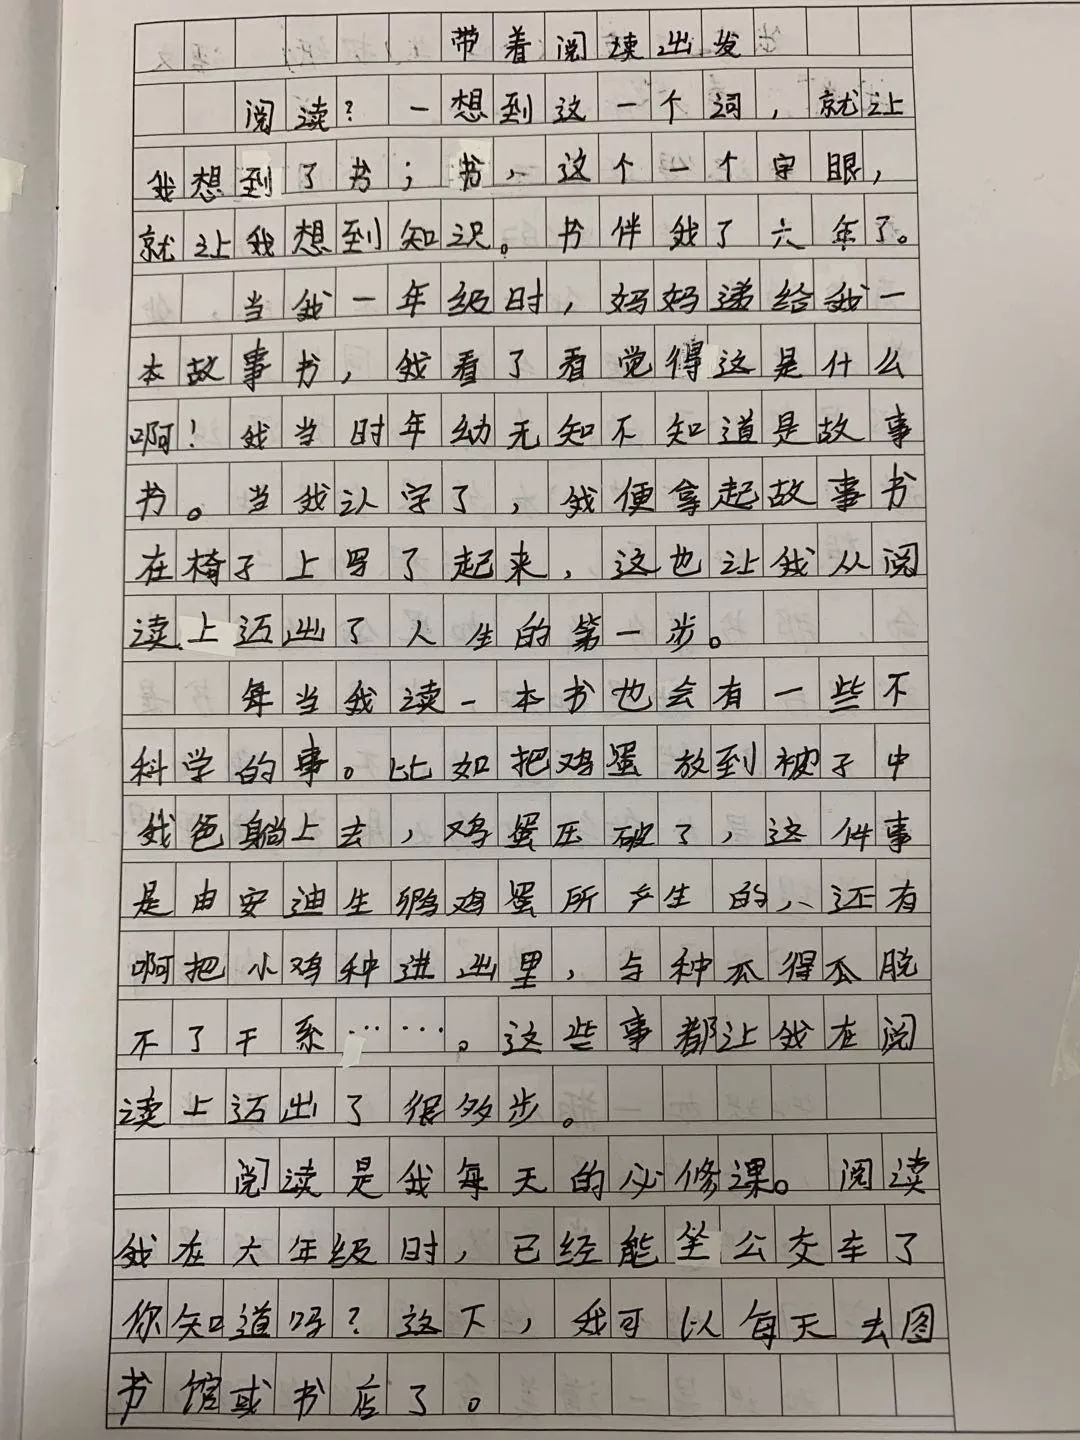 带着阅读出发
阅读？一想到这一个词，就让
我想到了书；书，这个一个字眼，
就让我想到知识。书伴我了六年了。
当我一年级时，妈妈递给我一
本故事书，我看了看觉得这是什么
啊！我当时年幼无知不知道是故事
书。当我认字了，我便拿起故事书
在椅子上写了起来，这也让我从阅
读上迈出了人生的第一步。
每当我读一本书也会有一些不
科学的事。比如把鸡蛋放到被子中
我爸躺上去，鸡蛋压破了，这件事
是由安迪生孵鸡蛋所产生的，还有
啊把小鸡种进出里，与种瓜得瓜脱
不了干系……。这些事都让我在阅
读上迈出了很多步。
阅读是我每天的必修课。阅读
我在六年级时，已经能坐公交车了
你知道吗？这下，我可以每天去图
书馆或书店了。